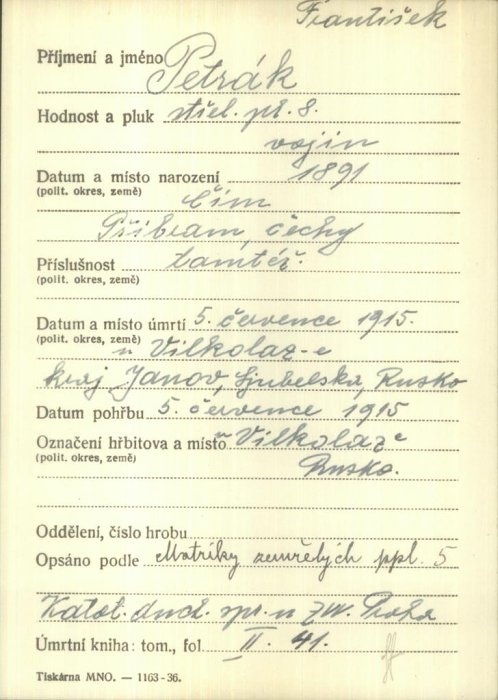 František
Příjmení a jméno Petrák
Hodnost a pluk střel. pl. 8.
vojín
Datum a místo narození 1891
(polit. okres, země) Čím
Příbram, čechy
Příslušnost tamtéž.
(polit. okres, země)
Datum a místo úmrtí 5. července 1915.
(polit. okres, země) u Vilkolaz-e
kraj Janov, Ljubelska, Rusko
Datum pohřbu 5. července 1915
Označení hřbitova a místo u Vilkolaz e
(polit. okres, země) Rusko.
Oddělení, číslo hrobu
Opsáno podle Matriky zemřelých ppl. 5
Katol. duch. spr. u ZVV. Praha
Úmrtní kniha: tom., fol. II. 41.
Tiskárna MNO. — 1163-36.